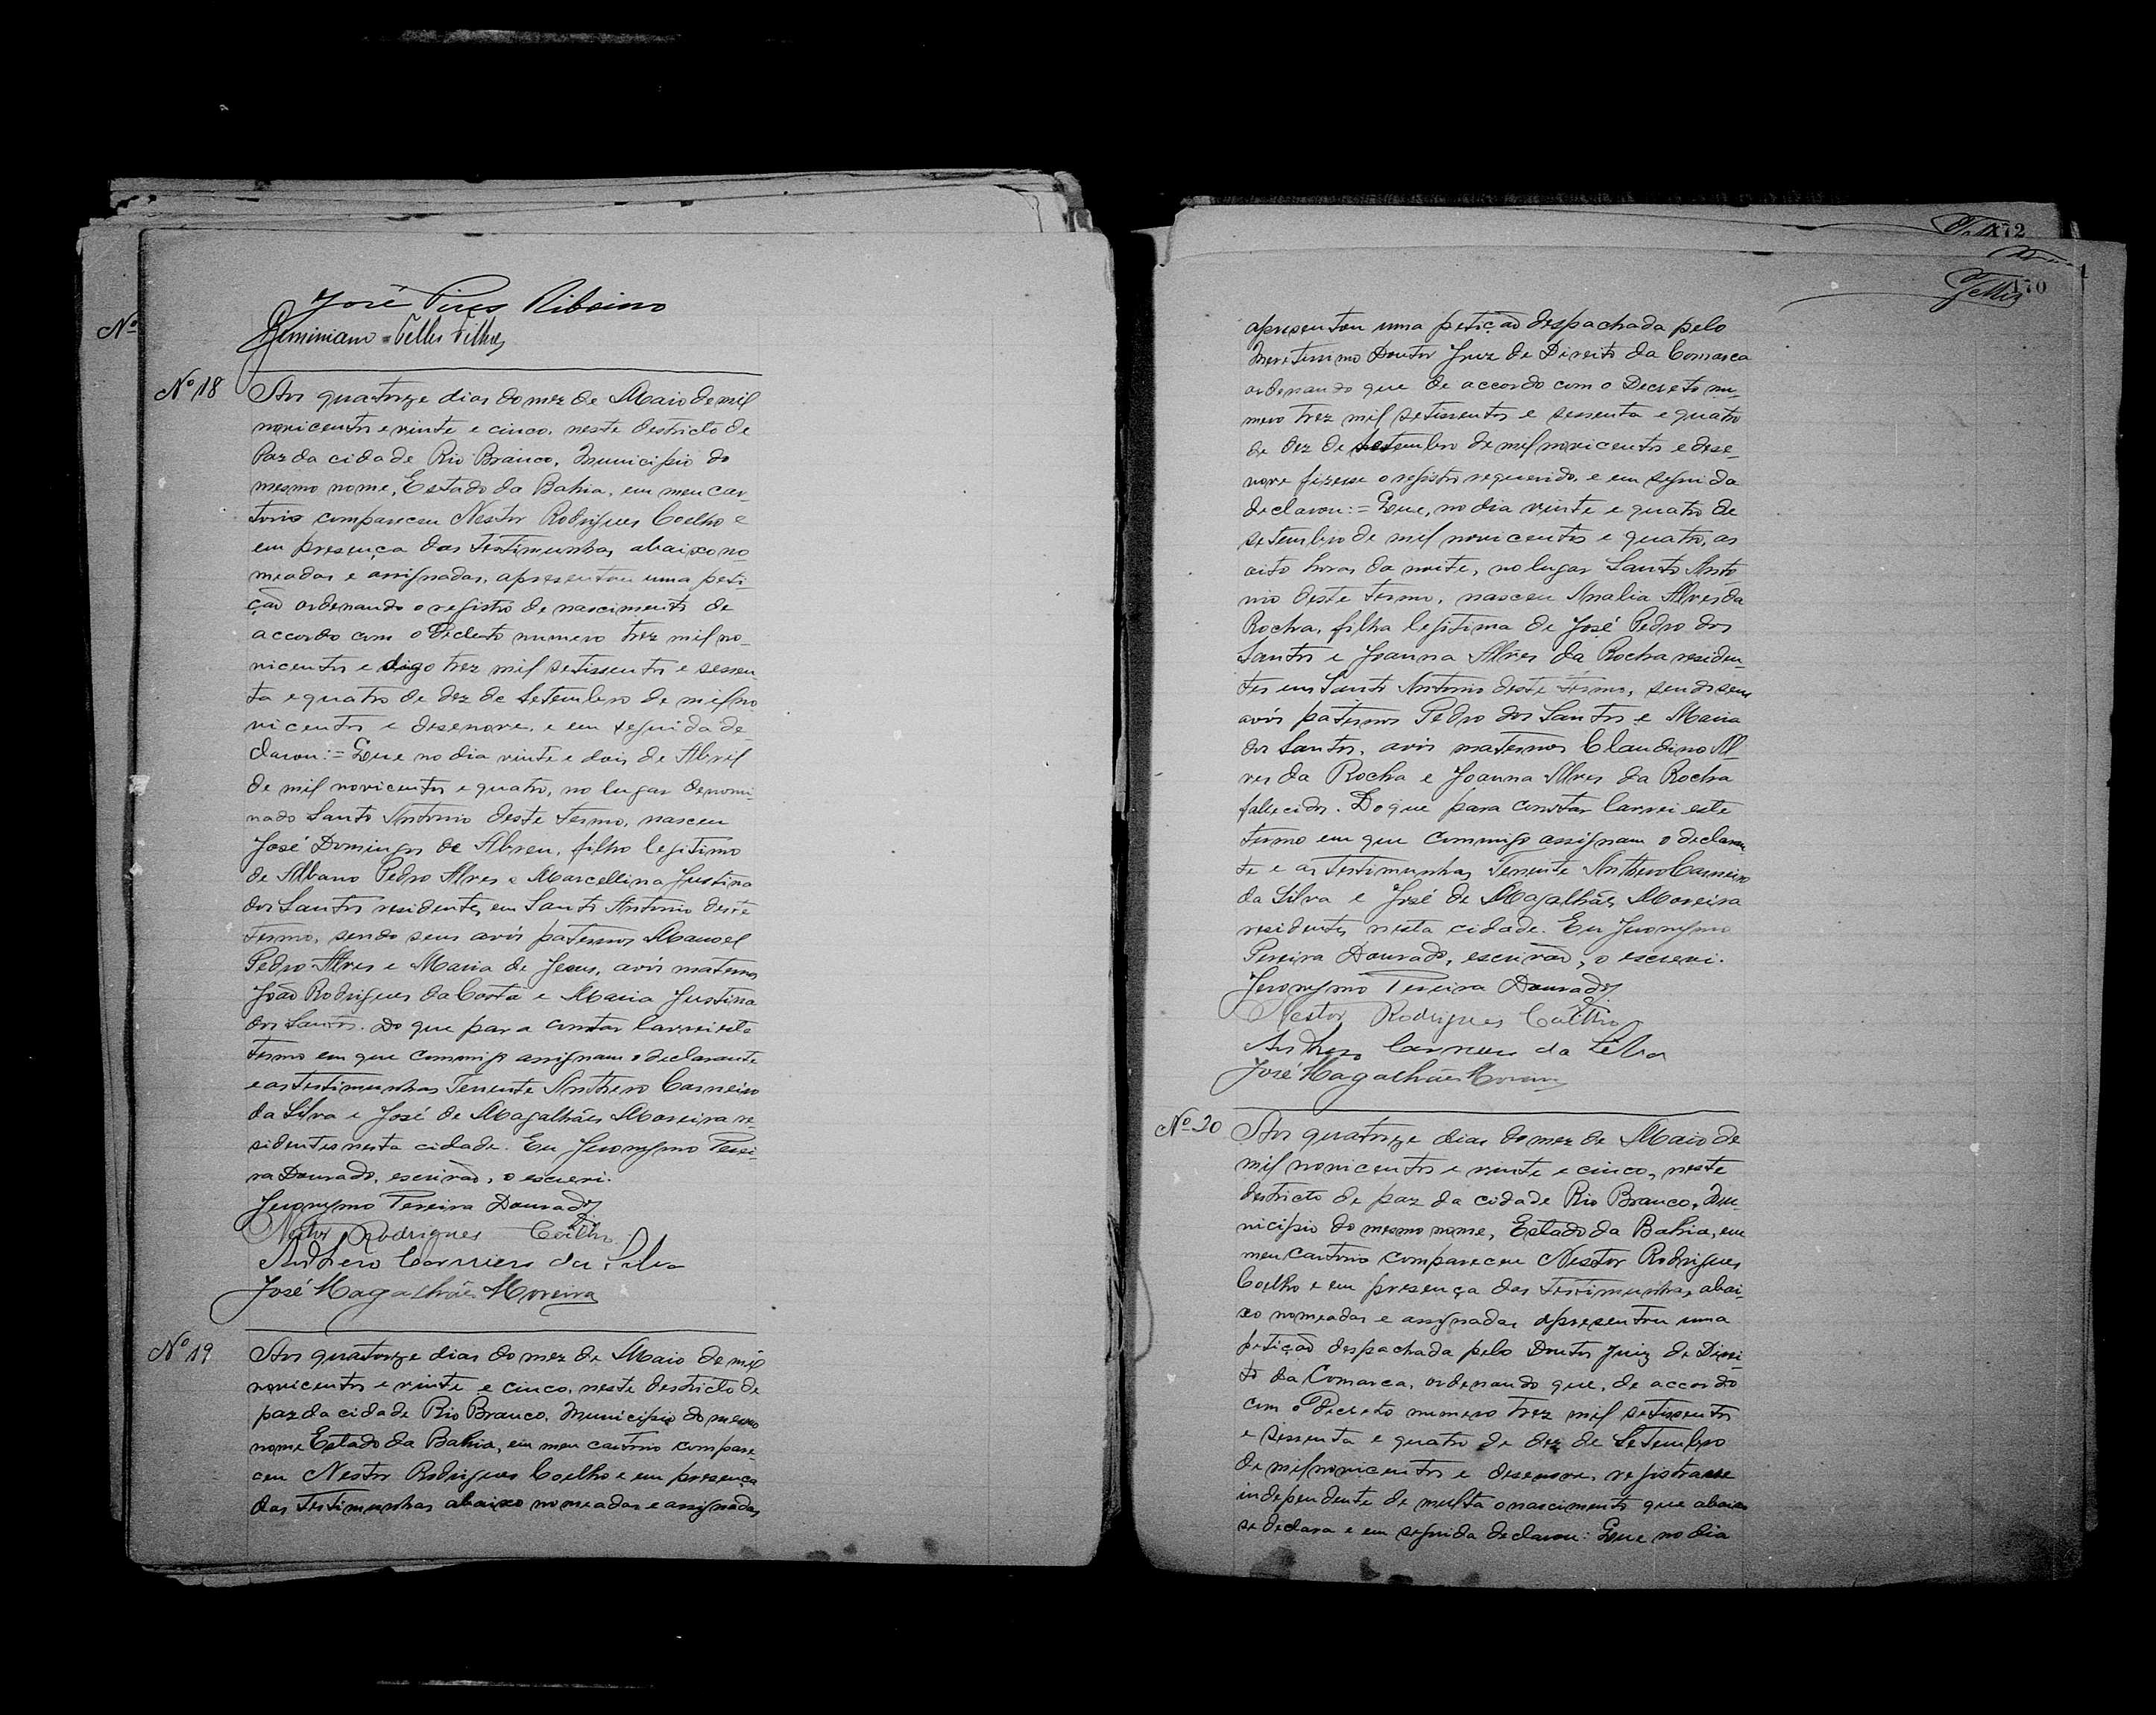 José Pires Ribeiro
Geminiano Telles Filho
Nº
Nº 18
Aos quatorze dias do mez de Maio de mil
novicentos e vinte e cinco, neste destricto de
Paz da cidade Rio Branco, Municipio do
mesmo nome, Estado da Bahia, em meu car-
torio compareceu Nestor Rodrigues Coelho e
em presença das testimunhas abaixo no-
meadas e assignadas, apresentou uma peti-
ção ordenando o registro de nascimento de
accordo com o Decreto numero trez mil no-
vicentos e digo trez mil setissentos e sessen-
ta e quatro de dez de Setembro de mil no
vicentos e desenove, e em seguida de-
clarou:= Que no dia vinte e dois de Abril
de mil novicentos e quatro, no lugar denomi-
nado Santo Antonio deste termo, nasceu
José Domingos de Abreu, filho legitimo
de Albano Pedro Alves e Marcellina Justina
dos Santos residentes em Santo Antonio deste
termo, sendo seus avós paternos Manoel
Pedro Alves e Maria de Jesus, avós maternos
João Rodrigues da Costa e Maria Justina
dos Santos. Do que para constar lavrei este
termo em que commigo assignam o declarante
e as testimunhas Tenente Anthero Carneiro
da Silva e José de Magalhães Moreira re-
sidentes nesta cidade. Eu Jeronymo Perei-
ra Dourado, escrivão, o escrevi.
Jeronymo Pereira Dourado
Nestor Rodrigues Coelho
Anthero Carneiro da Silva
José Magalhães Moreira
Nº 19
Aos quatorze dias do mez de Maio de mil
novicentos e vinte e cinco, neste destricto de
paz da cidade Rio Branco, Municipio do mesmo
nome Estado da Bahia, em meu cartorio compare-
ceu Nestor Rodrigues Coelho e em presença
das testimunhas abaixo nomeadas e assignadas
172
170
Telles
apresentou uma petição despachada pelo
Meretissimo Doutor Juiz de Direito da Comarca
ordenando que de accordo com o Decreto nu-
mero trez mil setissentos e sessenta e quatro
de dez de Setembro de mil novicentos e dese-
nove fizesse o registro requerido, e em seguida
declarou:= Que, no dia vinte e quatro de
setembro de mil novicentos e quatro, as
oito horas da noite, no lugar Santo Anto
nio deste termo, nasceu Analia Alves da
Rocha, filha legitima de José Pedro dos
Santos e Joanna Alves da Rocha residen-
tes em Santo Antonio deste termo, sendo seus
avós paternos Pedro dos Santos e Maria
dos Santos, avós maternos Claudino Al-
ves da Rocha e Joanna Alves da Rocha
fallecidos. Do que para constar lavrei este
termo em que commigo assignam o declaran-
te e as testimunhas Tenente Anthero Carneiro
da Silva e José de Magalhães Moreira
residentes nesta cidade. Eu Jeronymo
Pereira Dourado, escrivão, o escrevi.
Jeronymo Pereira Dourado
Nestor Rodrigues Coelho
Anthero Carneiro da Silva
José Magalhães Moreira
Nº 20
Aos quatorze dias do mez de Maio de
mil novicentos e vinte e cinco, neste
destricto de paz da cidade Rio Branco, Mu-
nicipio do mesmo nome, Estado da Bahia, em
meu cartorio compareceu Nestor Rodrigues
Coelho e em presença das testimunhas abai-
xo nomeadas e assignadas apresentou uma
petição despachada pelo Doutor Juiz de Direi-
to da Comarca, ordenando que, de accordo
com o Decreto numero trez mil setissentos
e sessenta e quatro de dez de Setembro
de mil novicentos e desenove, registrasse
independente de multa o nascimento que abaixo
se declara e em seguida declarou: Que no dia